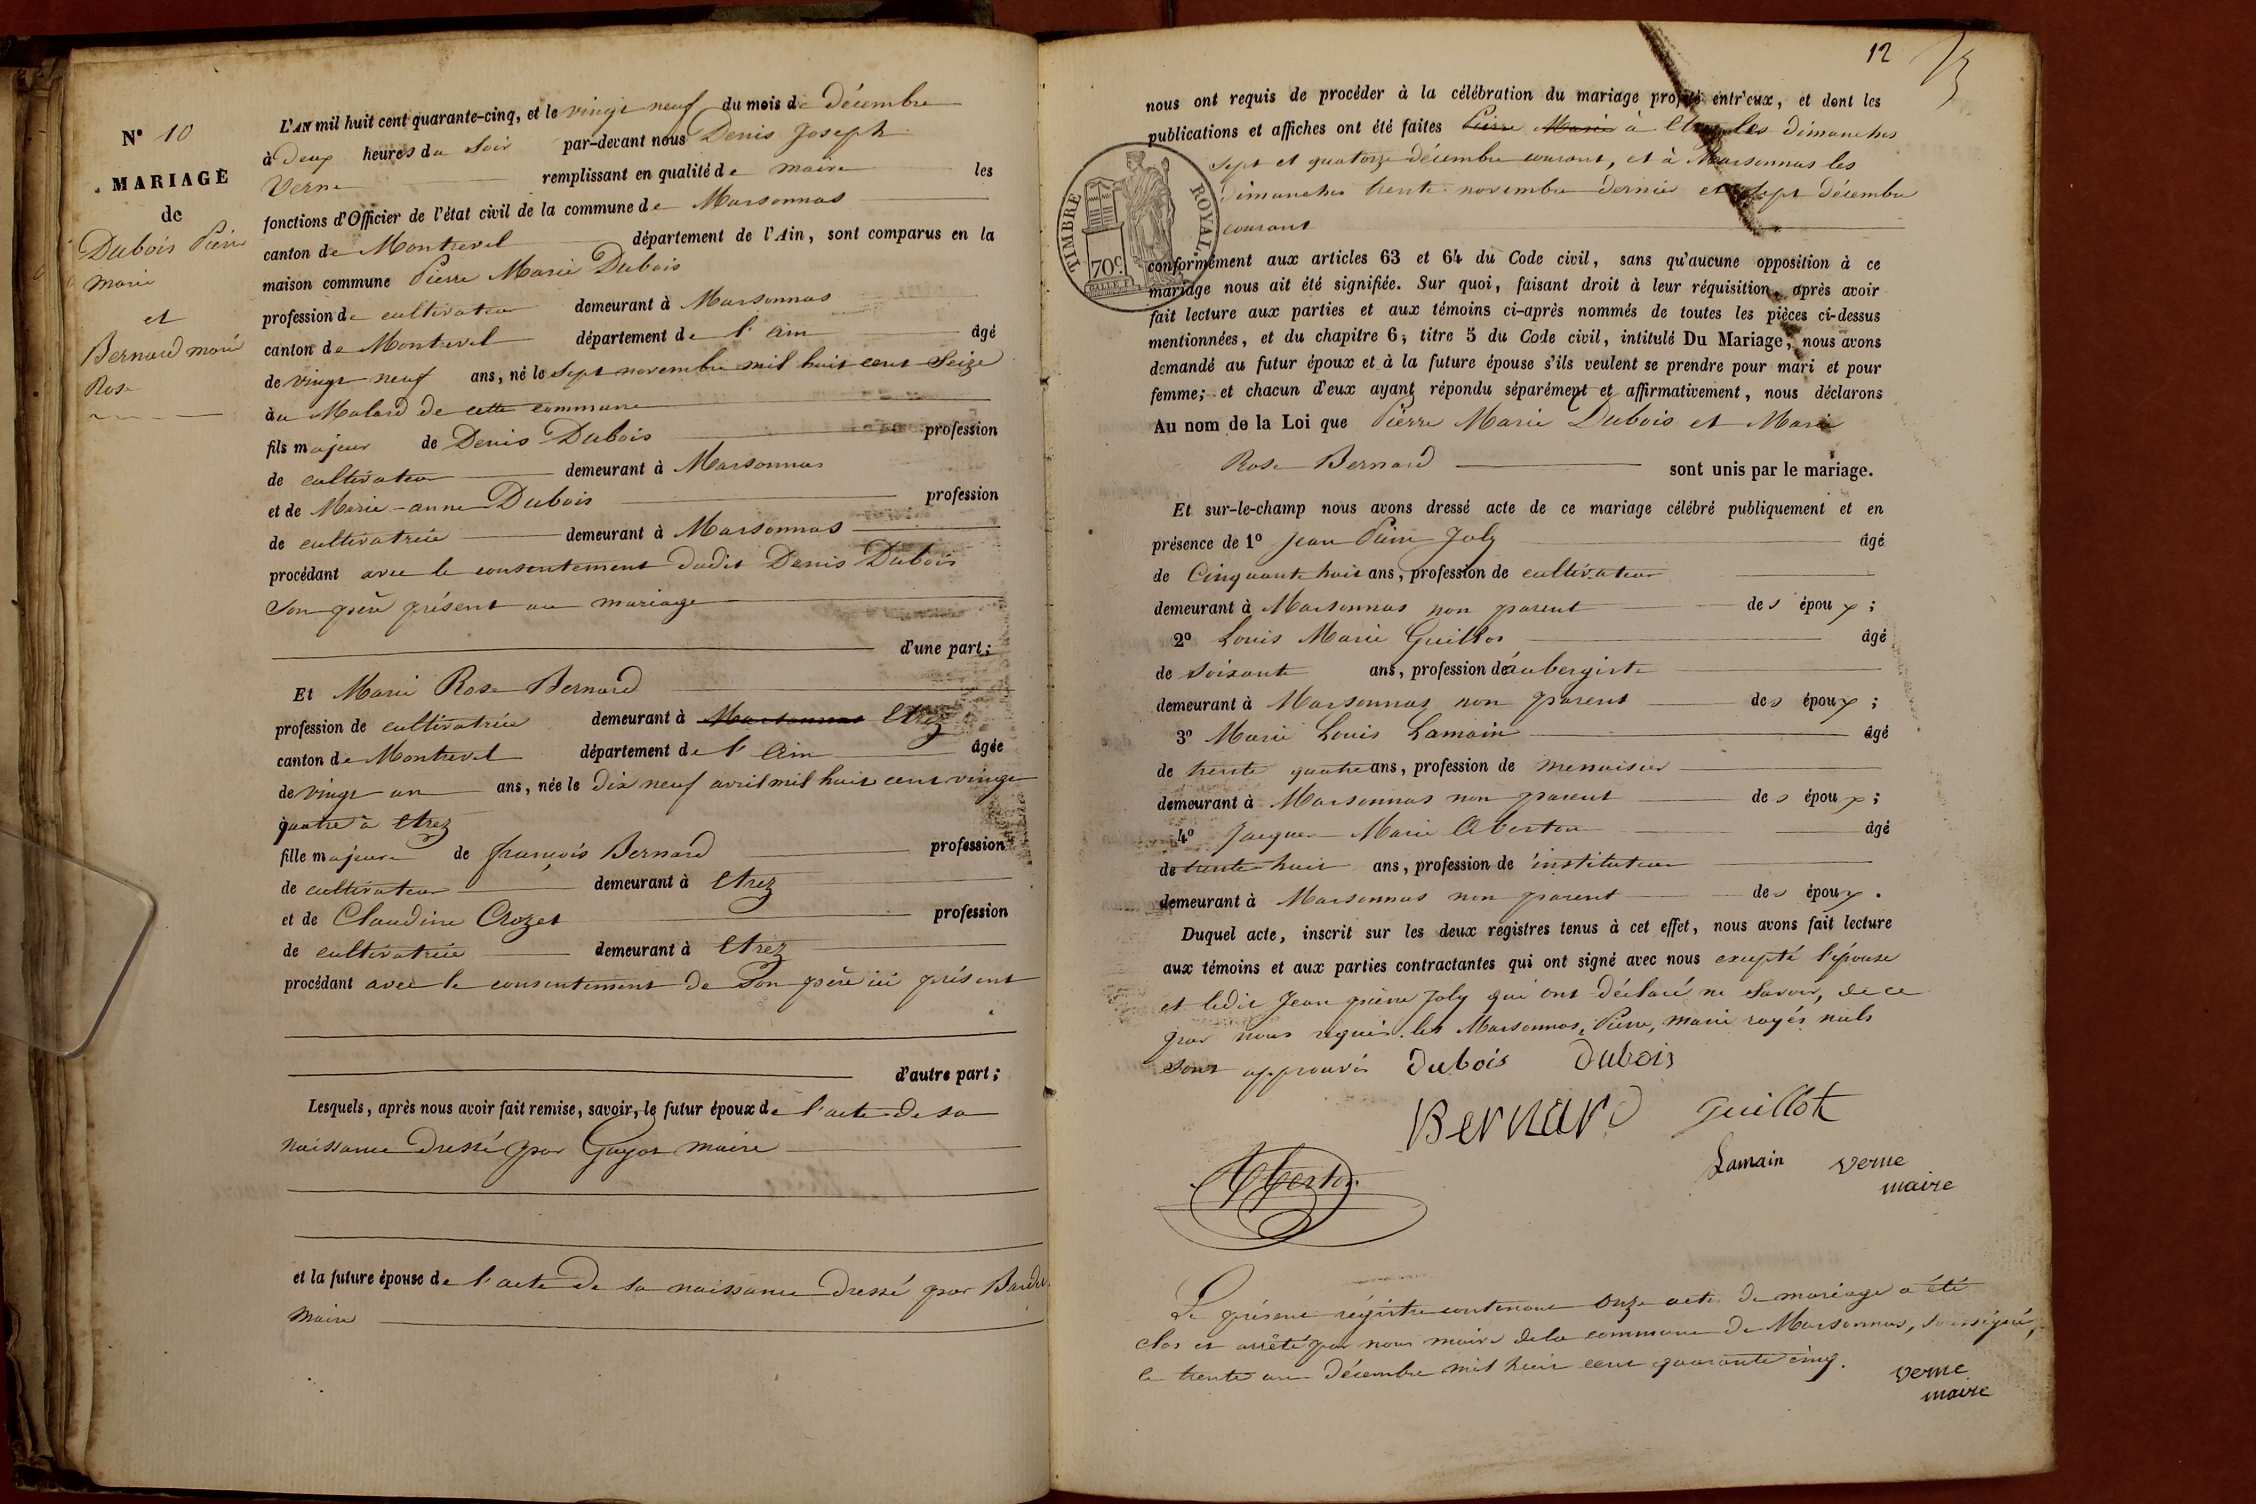 N° 10
MARIAGE
de
Dubois Pierre
Marie
et
Bernard marie
Rose
L'AN mil huit cent quarante-cinq, et le vingt neuf du mois de Décembre
à Deux heures du Soir par-devant nous Denis Joseph
Verne remplissant en qualité de maire les
fonctions d'Officier de l'état civil de la commune de Marsonnas
canton de Montrevel département de l'Ain, sont comparus en la
maison commune Pierre Marie Dubois
profession de cultivateur demeurant à Marsonnas
canton de Montrevel département de l'ain âgé
de vingt neuf ans, né le Sept novembre mil huit cent Seize
à au Molard de cette commune
fils majeur de Denis Dubois profession
de cultivateur demeurant à Marsonnas
et de Marie-anne Dubois profession
de cultivatrice demeurant à Marsonnas
procédant avec le consentement dudit Denis Dubois
Son père présent au mariage
d'une part;
Et Marie Rose Bernard
profession de cultivatrice demeurant à Marsonnas Etrez
canton de Montrevel département de l'ain âgée
de vingt un ans, née le Dix neuf avril mil huit cent vingt
quatre à Etrez
fille majeure de françois Bernard profession
de cultivateur demeurant à Etrez
et de Claudine Crozet profession
de cultivatrice demeurant à Etrez
procédant avec le consentement de Son père ici présent
d'autre part;
Lesquels, après nous avoir fait remise, savoir, le futur époux de l'acte de sa
naissance Dressé par Guyot maire
et la future épouse de l'acte de sa naissance dressé par
maire
12
nous ont requis de procéder à la célébration du mariage projeté entr'eux, et dont les
publications et affiches ont été faites Pierre Marie à Etrez les dimanches
Sept et quatorze décembre courant, et à Marsonnas les
Dimanches trente novembre dernier et Sept décembre
courant
TIMBRE ROYAL
70c.
conformément aux articles 63 et 64 du Code civil, sans qu'aucune opposition à ce
mariage nous ait été signifiée. Sur quoi, faisant droit à leur réquisition, après avoir
fait lecture aux parties et aux témoins ci-après nommés de toutes les pièces ci-dessus
mentionnées, et du chapitre 6, titre 5 du Code civil, intitulé Du Mariage, nous avons
demandé au futur époux et à la future épouse s'ils veulent se prendre pour mari et pour
femme; et chacun d'eux ayant répondu séparément et affirmativement, nous déclarons
Au nom de la Loi que Pierre Marie Dubois et Marie
Rose Bernard sont unis par le mariage.
Et sur-le-champ nous avons dressé acte de ce mariage célébré publiquement et en
présence de 1° Jean Pierre Joly âgé
de Cinquante huit ans, profession de cultivateur
demeurant à Marsonnas non parent des époux;
2° Louis Marie Guillot âgé
de soixante ans, profession d'aubergiste
demeurant à Marsonnas non parent des époux;
3° Marie Louis Lamain âgé
de trente quatre ans, profession de menuisier
demeurant à Marsonnas non parent des époux;
4° Jacques Marie Aberton âgé
de trente huit ans, profession de instituteur
demeurant à Marsonnas non parent des époux.
Duquel acte, inscrit sur les deux registres tenus à cet effet, nous avons fait lecture
aux témoins et aux parties contractantes qui ont signé avec nous excepté l'épouse
et ledit Jean pierre Joly qui ont déclaré ne Savoir, de ce
par nous requis. les Marsonnas, Pierre, marie rayés nuls
sont approuvés Dubois Dubois
Bernard Guillot
Aberton Lamain Verne
maire
Le présent régistre contenant onze actes de mariage a été
clos et arrêté par nous maire de la commune de Marsonnas, soussigné,
le trente un Décembre mil huit cent quarante cinq.
Verne
maire